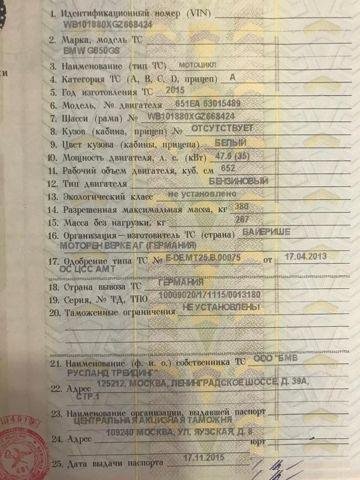 1. Идентификационный номер (VIN)
WB101880XGZ668424
2. Марка, модель ТС
BMW G650GS
3. Наименование (тип ТС) мотоцикл
4. Категория ТС (А, В, С, D, прицеп) A
5. Год изготовления ТС 2015
6. Модель, № двигателя 651EA 53015489
7. Шасси (рама) № WB101880XGZ668424
8. Кузов (кабина, прицеп) № ОТСУТСТВУЕТ
9. Цвет кузова (кабины, прицепа) БЕЛЫЙ
10. Мощность двигателя, л. с. (кВт) 47.6 (35)
11. Рабочий объем двигателя, куб. см 652
12. Тип двигателя БЕНЗИНОВЫЙ
13. Экологический класс не установлено
14. Разрешенная максимальная масса, кг 380
15. Масса без нагрузки, кг 267
16. Организация—изготовитель ТС (страна) БАЙЕРИШЕ
МОТОРЕН ВЕРКЕ АГ (ГЕРМАНИЯ)
17. Одобрение типа ТС № E-DE.MT25.B.00075 от 17.04.2013
ОС ЦСС АМТ
18. Страна вывоза ТС ГЕРМАНИЯ
19. Серия, № ТД, ТПО 10009020/171115/0013180
20. Таможенные ограничения НЕ УСТАНОВЛЕНЫ
21. Наименование (ф. и. о.) собственника ТС ООО "БМВ
РУСЛАНД ТРЕЙДИНГ"
22. Адрес 125212, МОСКВА, ЛЕНИНГРАДСКОЕ ШОССЕ, Д. 39А,
СТР.1
23. Наименование организации, выдавшей паспорт
ЦЕНТРАЛЬНАЯ АКЦИЗНАЯ ТАМОЖНЯ
24. Адрес 109240 МОСКВА, УЛ. ЯУЗСКАЯ, Д. 8
25. Дата выдачи паспорта 17.11.2015